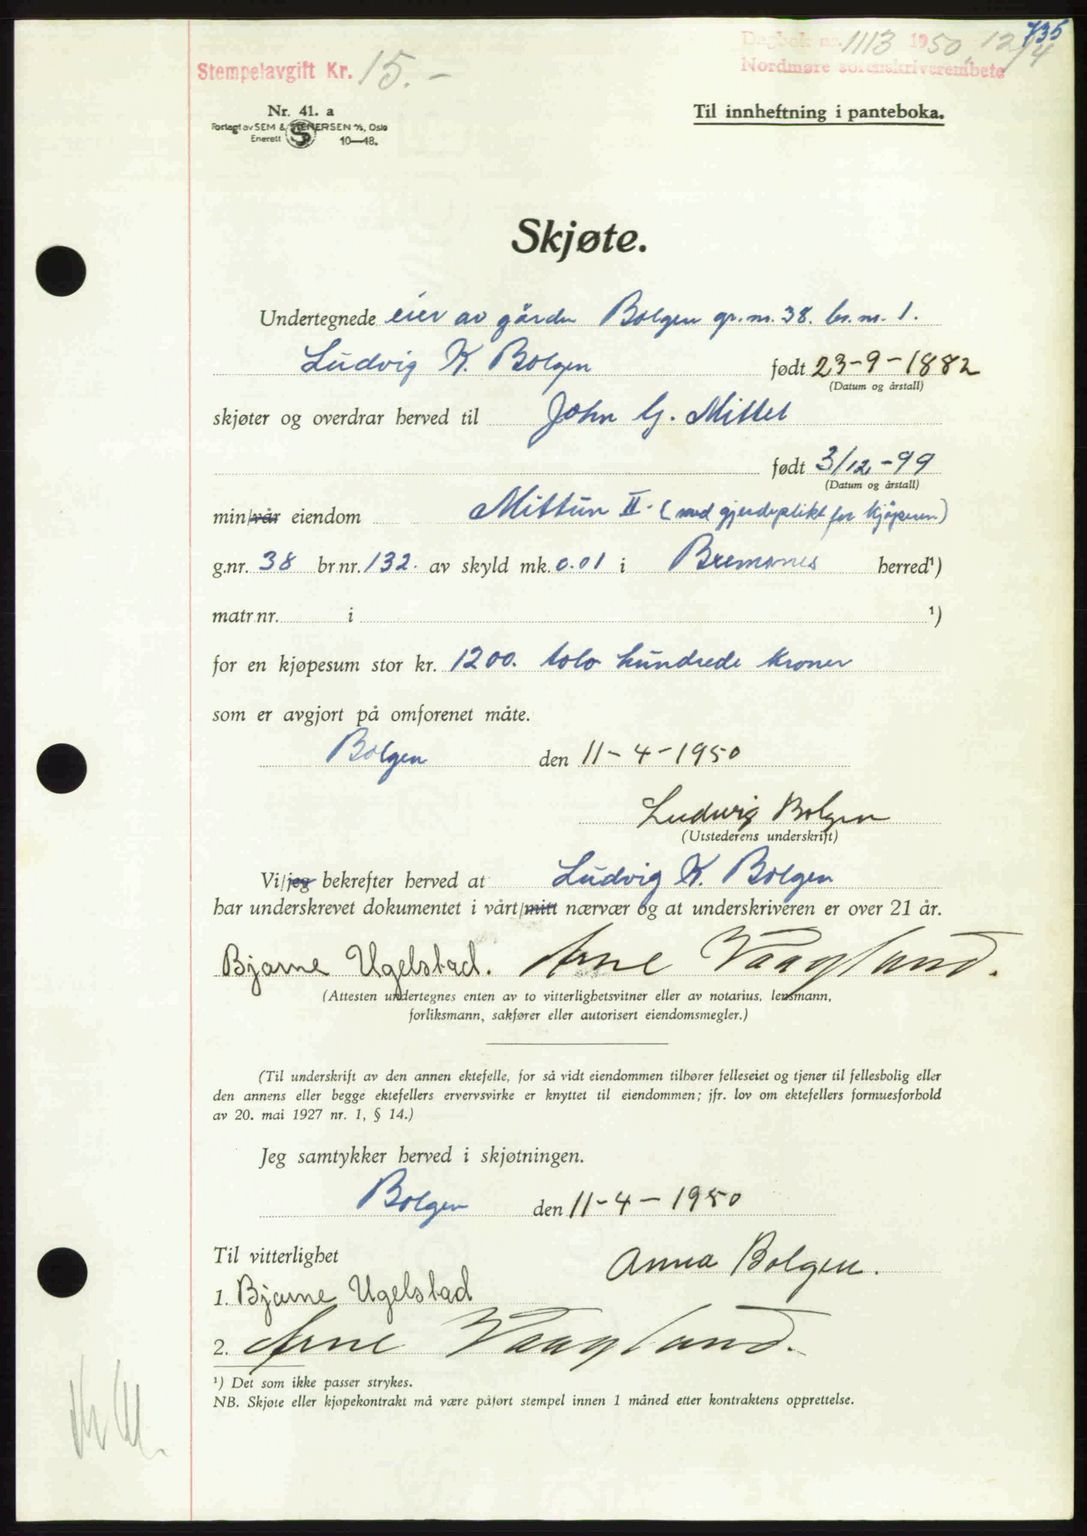 735
Dagbok nr. 1113 1950 12/4
Nordmøre sorenskriverembete
Stempelavgift Kr. 15.-
Nr. 41. a
Forlagt av SEM & STENERSEN A/S, Oslo
Enerett 10—48.
Til innheftning i panteboka.
Skjøte.
Undertegnede eier av gården Bolgen gr. nr. 38. br. nr. 1.
Ludvig K. Bolgen født 23-9-1882
(Datum og årstall)
skjøter og overdrar herved til John G. Mittet
født 3/12-99
(Datum og årstall)
min/vår eiendom Mittun II. (med gjerdeplikt for kjøperen)
g.nr. 38 br nr. 132. av skyld mk. 0.01 i Bremsnes herred¹)
matr nr. i ¹)
for en kjøpesum stor kr. 1200. tolv hundrede kroner
som er avgjort på omforenet måte.
Bolgen den 11-4-1950
Ludvig Bolgen
(Utstederens underskrift)
Vi/jeg bekrefter herved at Ludvig K. Bolgen
har underskrevet dokumentet i vårt/mitt nærvær og at underskriveren er over 21 år.
Bjarne Ugelstad. Arne Vaagland.
(Attesten undertegnes enten av to vitterlighetsvitner eller av notarius, lensmann,
forliksmann, sakfører eller autorisert eiendomsmegler.)
(Til underskrift av den annen ektefelle, for så vidt eiendommen tilhører felleseiet og tjener til fellesbolig eller
den annens eller begge ektefellers ervervsvirke er knyttet til eiendommen; jfr. lov om ektefellers formuesforhold
av 20. mai 1927 nr. 1, § 14.)
Jeg samtykker herved i skjøtningen.
Bolgen den 11-4-1950
Til vitterlighet
Anna Bolgen.
1. Bjarne Ugelstad
2. Arne Vaagland.
¹) Det som ikke passer strykes.
NB. Skjøte eller kjøpekontrakt må være påført stempel innen 1 måned etter kontraktens opprettelse.